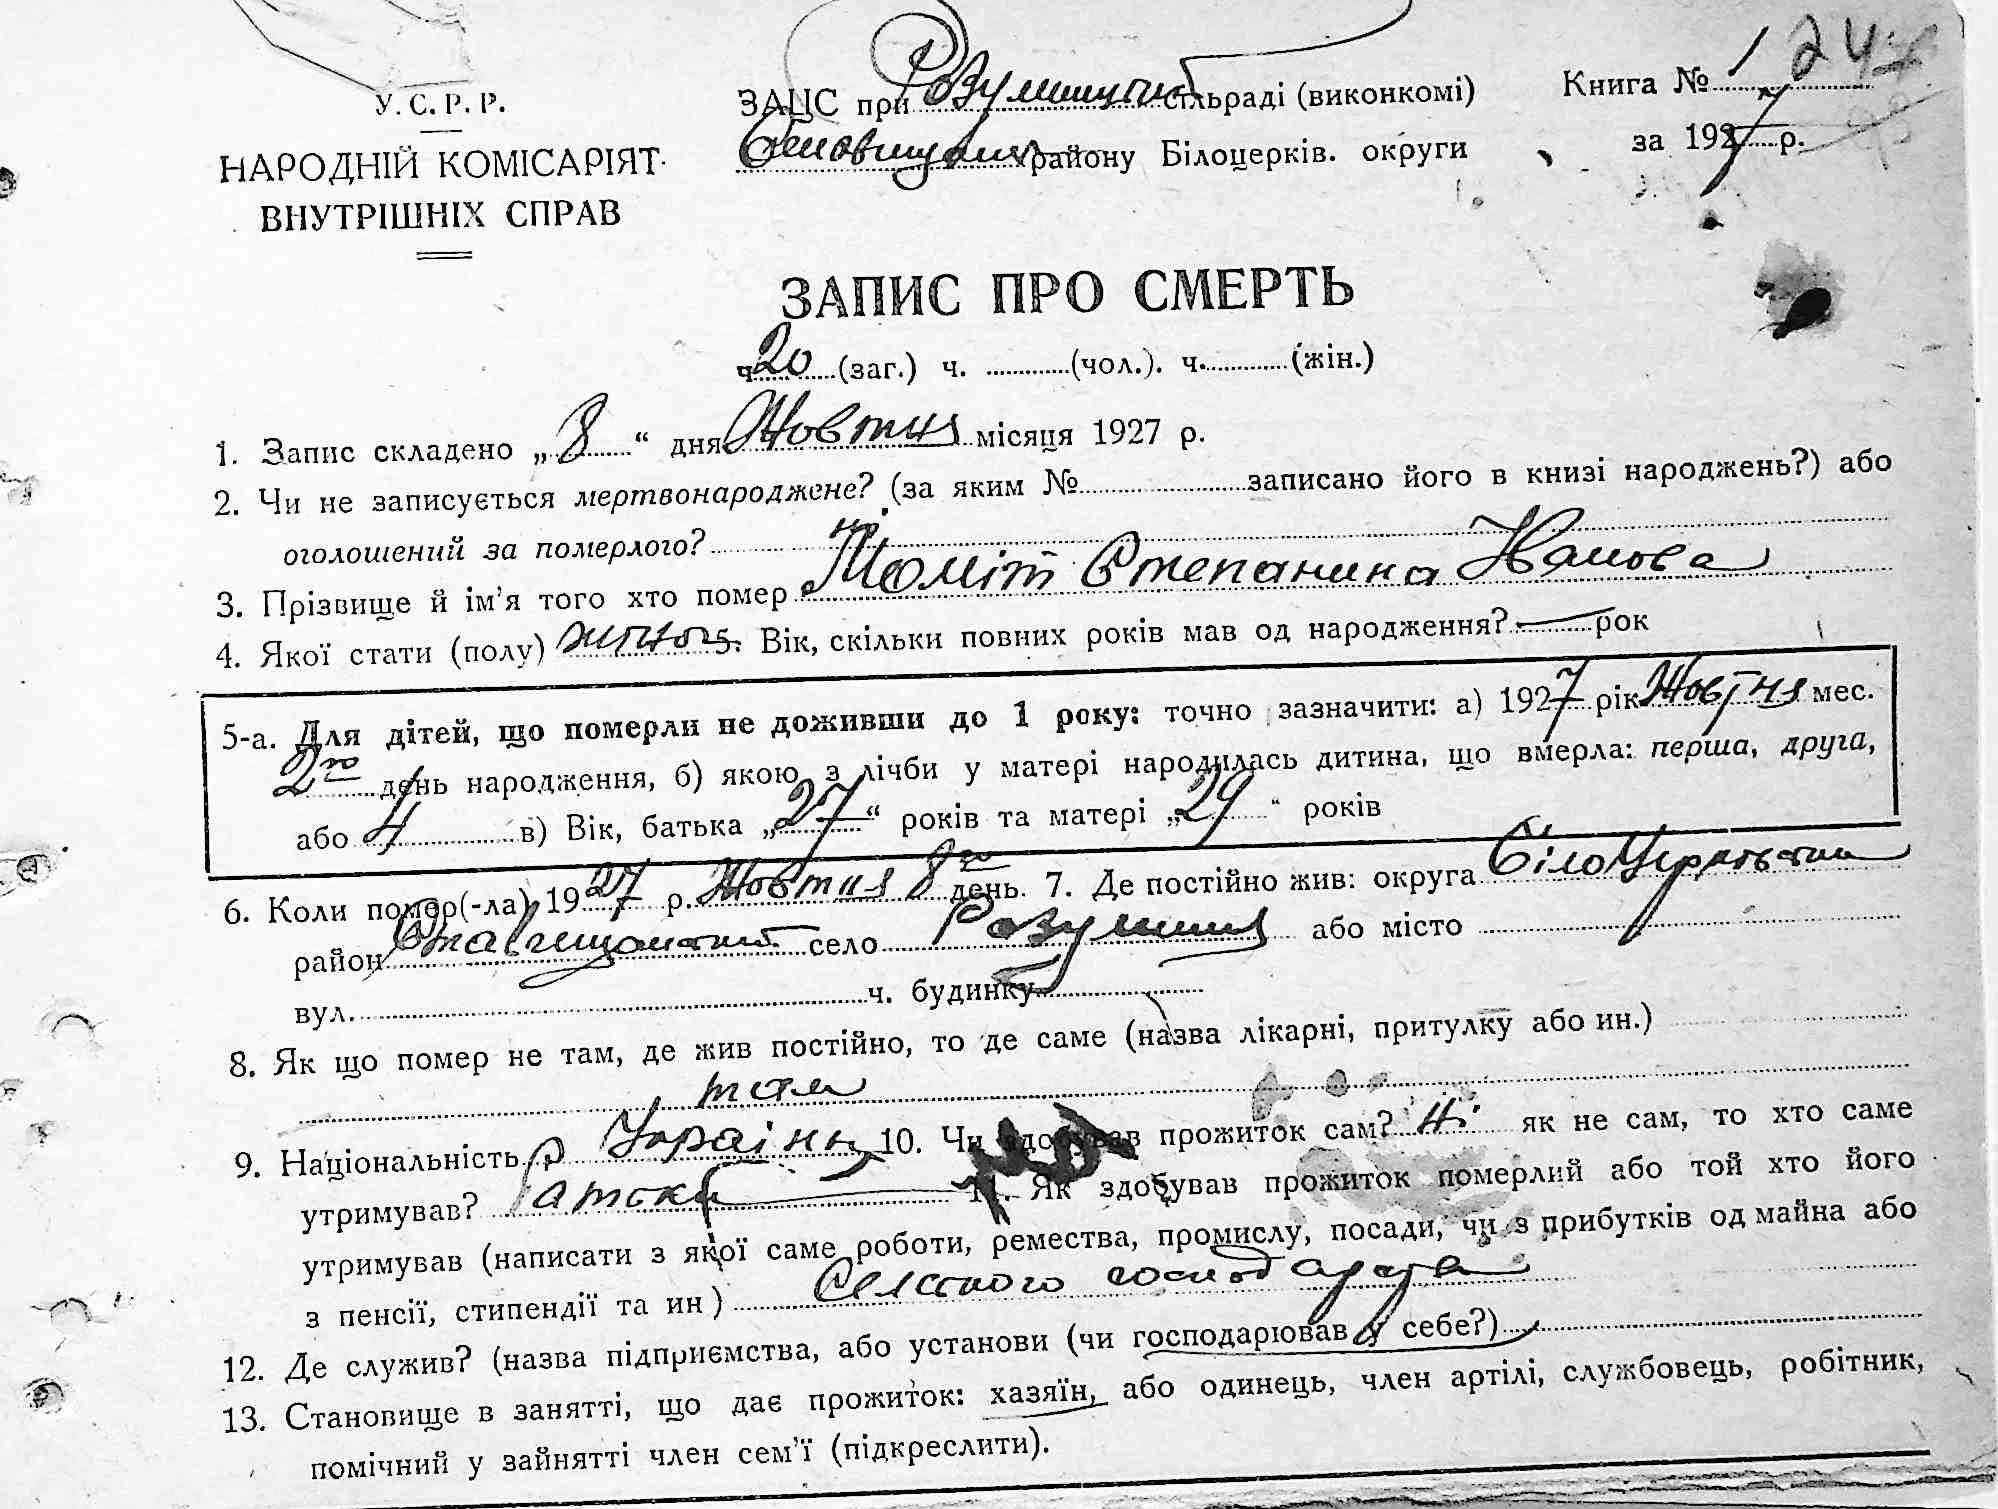 У.С.Р.Р.
НАРОДНІЙ КОМІСАРІЯТ
ВНУТРІШНІХ СПРАВ
ЗАЦС при сільраді (виконкомі)
району Білоцерків. округи
Книга № 1 247
за 1927 р.
ЗАПИС ПРО СМЕРТЬ
ч. 20 (заг.) ч. (чол.). ч. (жін.)
1. Запис складено „ 8 “ дня Жовтня місяця 1927 р.
2. Чи не записується мертвонароджене? (за яким № записано його в книзі народжень?) або
оголошений за померлого? ні
3. Прізвище й ім’я того хто помер Степанина
4. Якої стати (полу) Вік, скільки повних років мав од народження? — рок
5-а. Для дітей, що померли не доживши до 1 року: точно зазначити: а) 1927 рік Жовтня мес.
2го день народження, б) якою з лічби у матері народилась дитина, що вмерла: перша, друга,
або 4 в) Вік, батька „ 27 “ років та матері „ 29 “ років
6. Коли помер(-ла) 1927 р. Жовтня 8го день. 7. Де постійно жив: округа
район село або місто
вул. ч. будинку
8. Як що помер не там, де жив постійно, то де саме (назва лікарні, притулку або ин.)
там
9. Національність 10. Чи здобував прожиток сам? ні як не сам, то хто саме
утримував? 11. Як здобував прожиток померлий або той хто його
утримував (написати з якої саме роботи, ремества, промислу, посади, чи з прибутків од майна або
з пенсії, стипендії та ин)
12. Де служив? (назва підприємства, або установи (чи господарював у себе?)
13. Становище в занятті, що дає прожиток: хазяїн, або одинець, член артілі, службовець, робітник,
помічний у зайнятті член сем’ї (підкреслити).